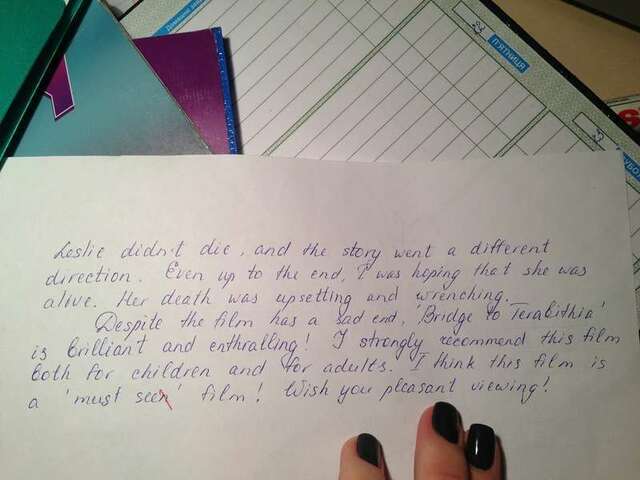 Leslie didn't die, and the story went a different
direction. Even up to the end, I was hoping that she was
alive. Her death was upsetting and wrenching.
Despite the film has a sad end, 'Bridge to Terabithia'
is brilliant and enthralling! I strongly recommend this film
both for children and for adults. I think this film is
a 'must see' film! Wish you pleasant viewing!
П'ЯТНИЦЯ